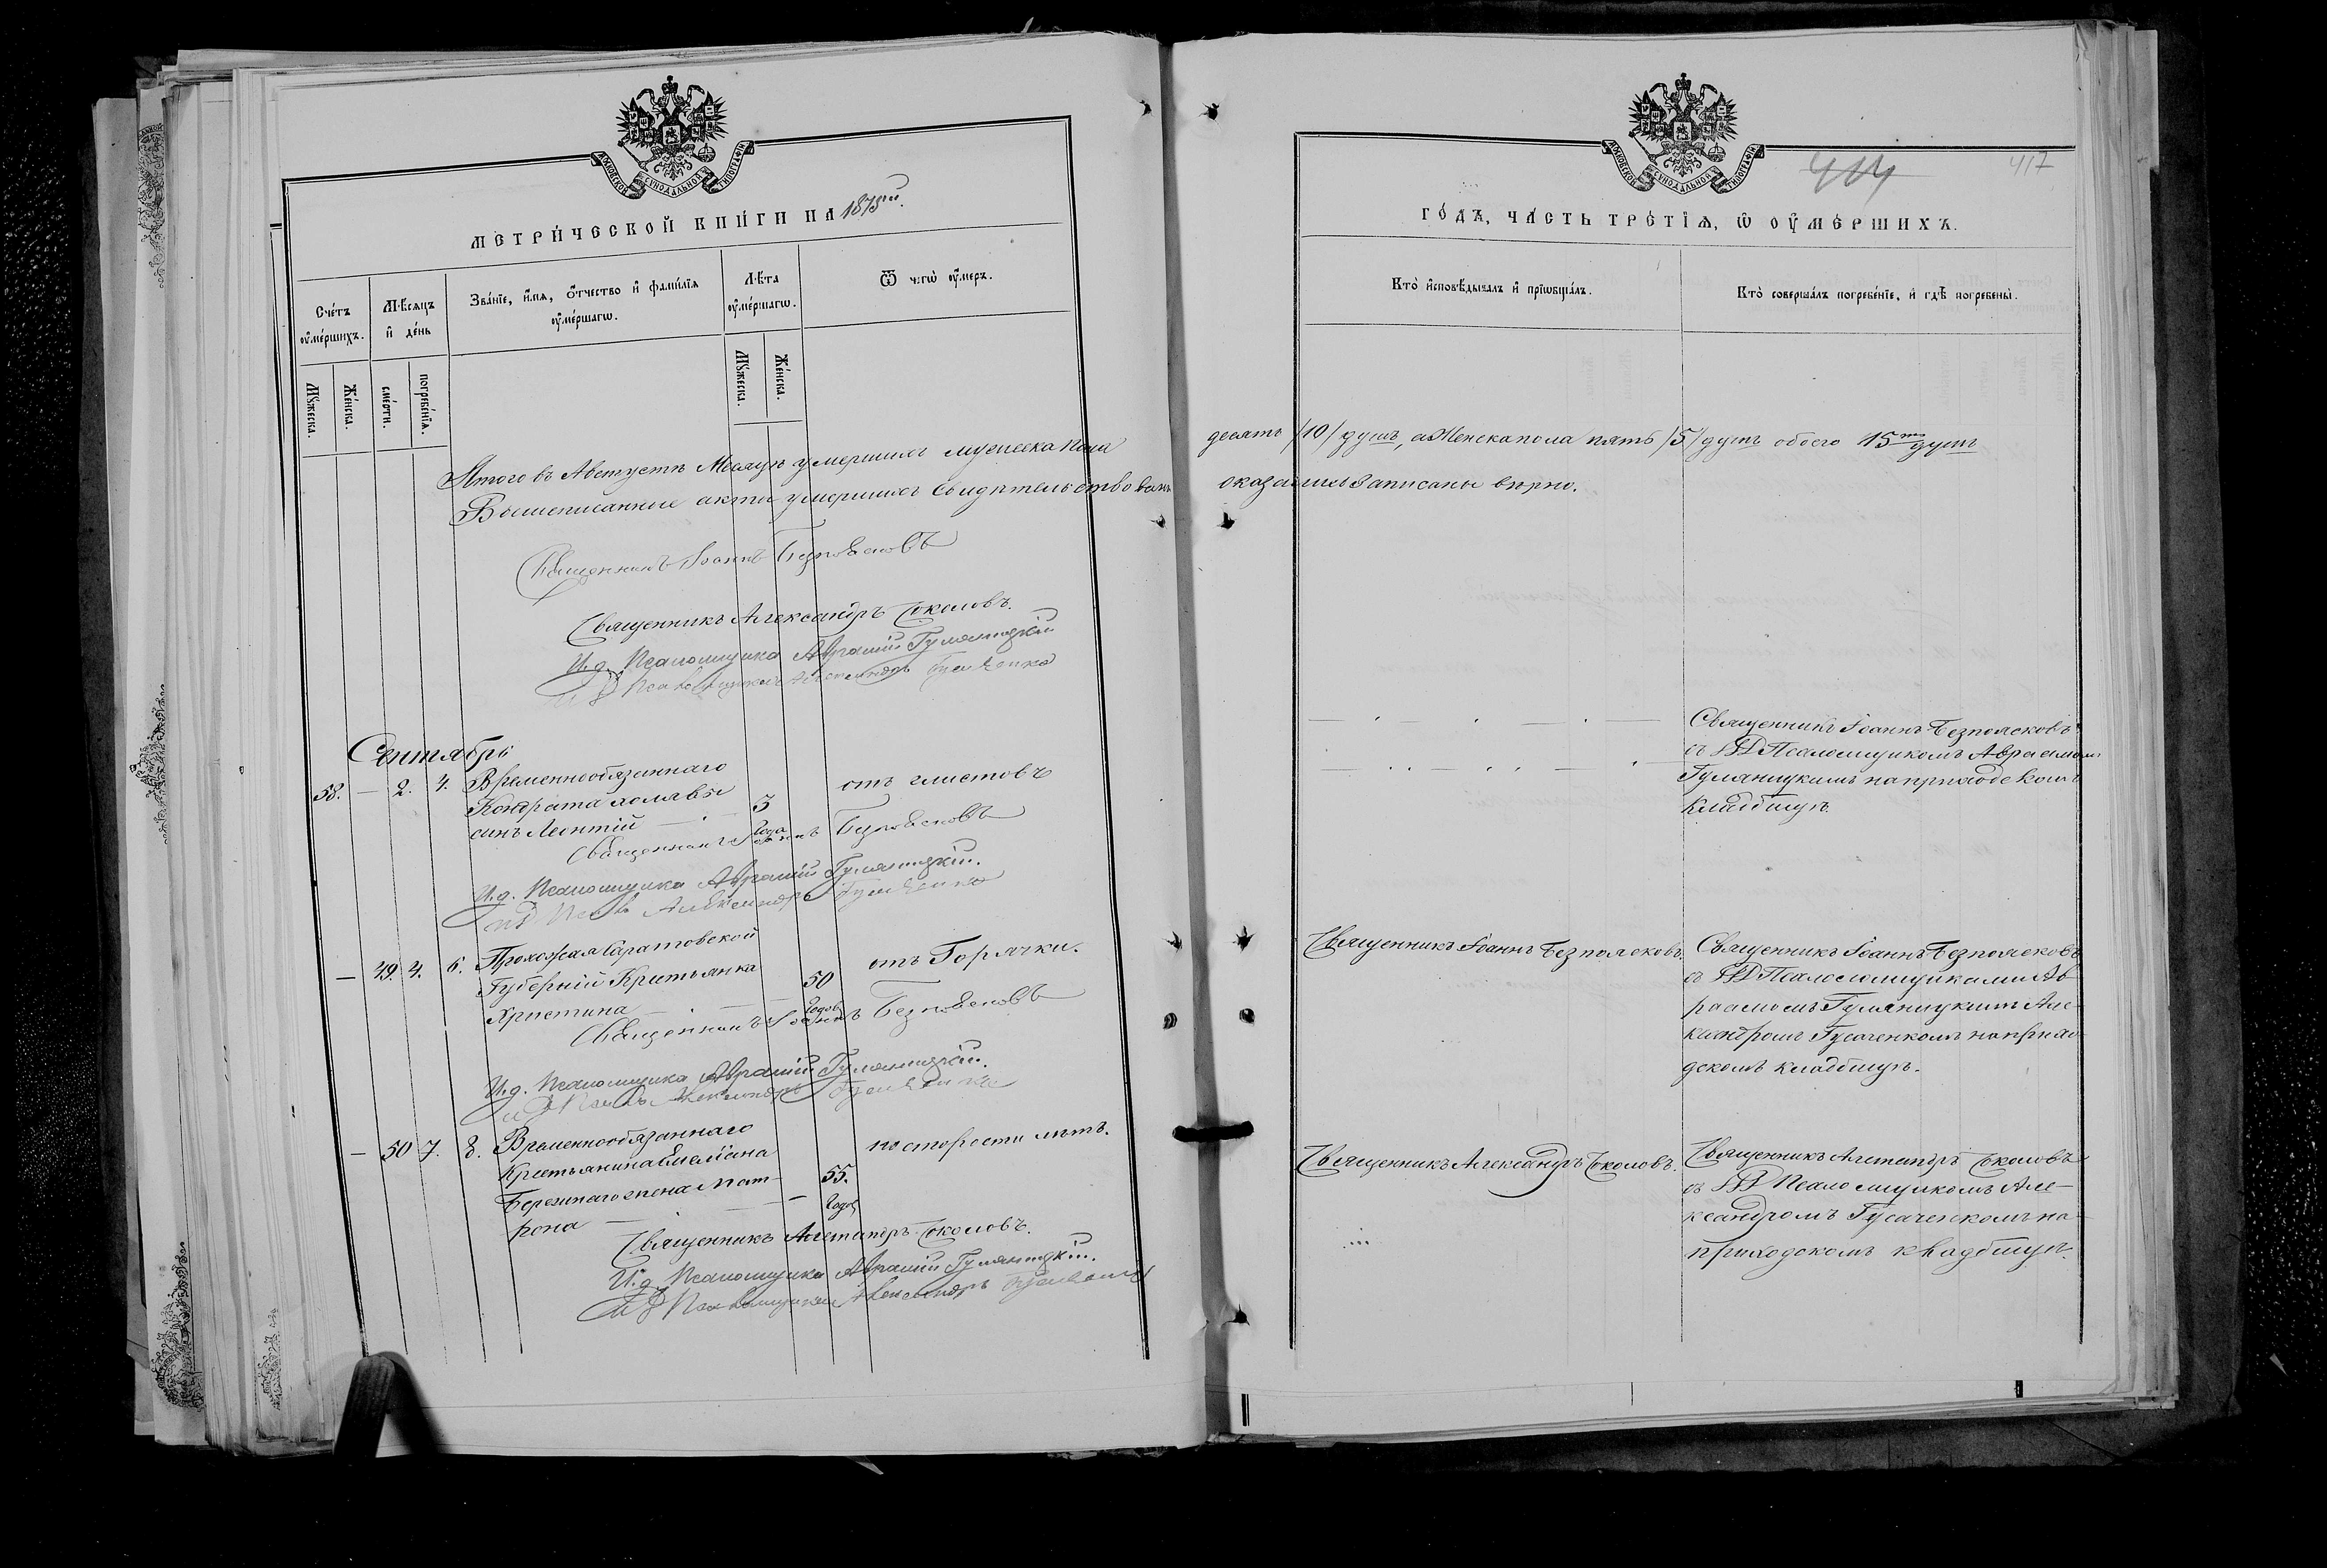 МОСКОВСКОЙ СѴНОДАЛЬНОЙ ТИПОГРАФІИ
МЕТРИ́ЧЕСКОЙ КНИ́ГИ НА 1875ый.
Сче́тъ ᲂу҆ме́ршихъ.
Мѣ́сяцъ и҆ де́нь
Зва́нїе, и҆́мя, ѻ҆́тчество и҆ фами́лїя ᲂу҆ме́ршагѡ.
Лѣ́та ᲂу҆ме́ршагѡ.
Ѿ чегѡ̀ ᲂу҆́меръ.
Мꙋ́жеска.
Же́нска.
сме́рти.
погребе́нїѧ.
Мꙋ́жеска.
Же́нска.
Итого въ Августѣ Месяцѣ умершихъ мужеска пола
Вышеписанные акты умершихъ свидѣтельствованы
Священникъ Іоаннъ Безпоясковъ
Священникъ Александръ Соколовъ.
И.д. Псаломщика Авраамій Гуляницкій
Сентябрь
58. — 2. 4. Временнообязаннаго
Кондрата Холявы
сынъ Леонтій — 3 Года
отъ глистовъ
Священникъ Іоаннъ Безпоясковъ
И.д. Псаломщика Авраамій Гуляницкій.
— 49. 4. 6. Прохожая Саратовской
Губерніи Крестьянка
Христина — 50 Годов
отъ Горячки.
Священникъ Іоаннъ Безпоясковъ
И.д. Псаломщика Авраамій Гуляницкій.
— 50 7. 8. Временнообязаннаго
Крестьянина Емеліана
Березнаго жена Мат-
рона — 55. Годов
по старости лѣтъ.
Священникъ Александръ Соколовъ.
И.д. Псаломщика Авраамій Гуляницкій.
МОСКОВСКОЙ СѴНОДАЛЬНОЙ ТИПОГРАФІИ
417
ГО́ДЪ, ЧА́СТЬ ТРЕ́ТЇЯ, Ѡ҆ ОУ҆МЕ́РШИХЪ.
Кто̀ и҆сповѣ́дывалъ и҆ прїѡбща́лъ.
Кто̀ соверша́лъ погребе́нїе, и҆ гдѣ̀ погребены̀.
десять /10/ душъ, а Женска пола пять /5/ душъ обоего 15ть душъ
оказались записаны вѣрно.
Священникъ Іоаннъ Безпоясковъ
съ ИД Псаломщикомъ Авраамомъ
Гуляницкимъ на приходскомъ
кладбищѣ.
Священникъ Іоаннъ Безпоясковъ.
Священникъ Іоаннъ Безпоясковъ
съ ИД Псаломщиками Ав-
раамомъ Гуляницкимъ Але-
ксандромъ Гусаченкомъ на прихо-
дскомъ кладбищѣ.
Священникъ Александръ Соколовъ.
Священникъ Александръ Соколовъ
съ ИД Псаломщикомъ Але-
ксандромъ Гусаченкомъ на
приходскомъ кладбищѣ.